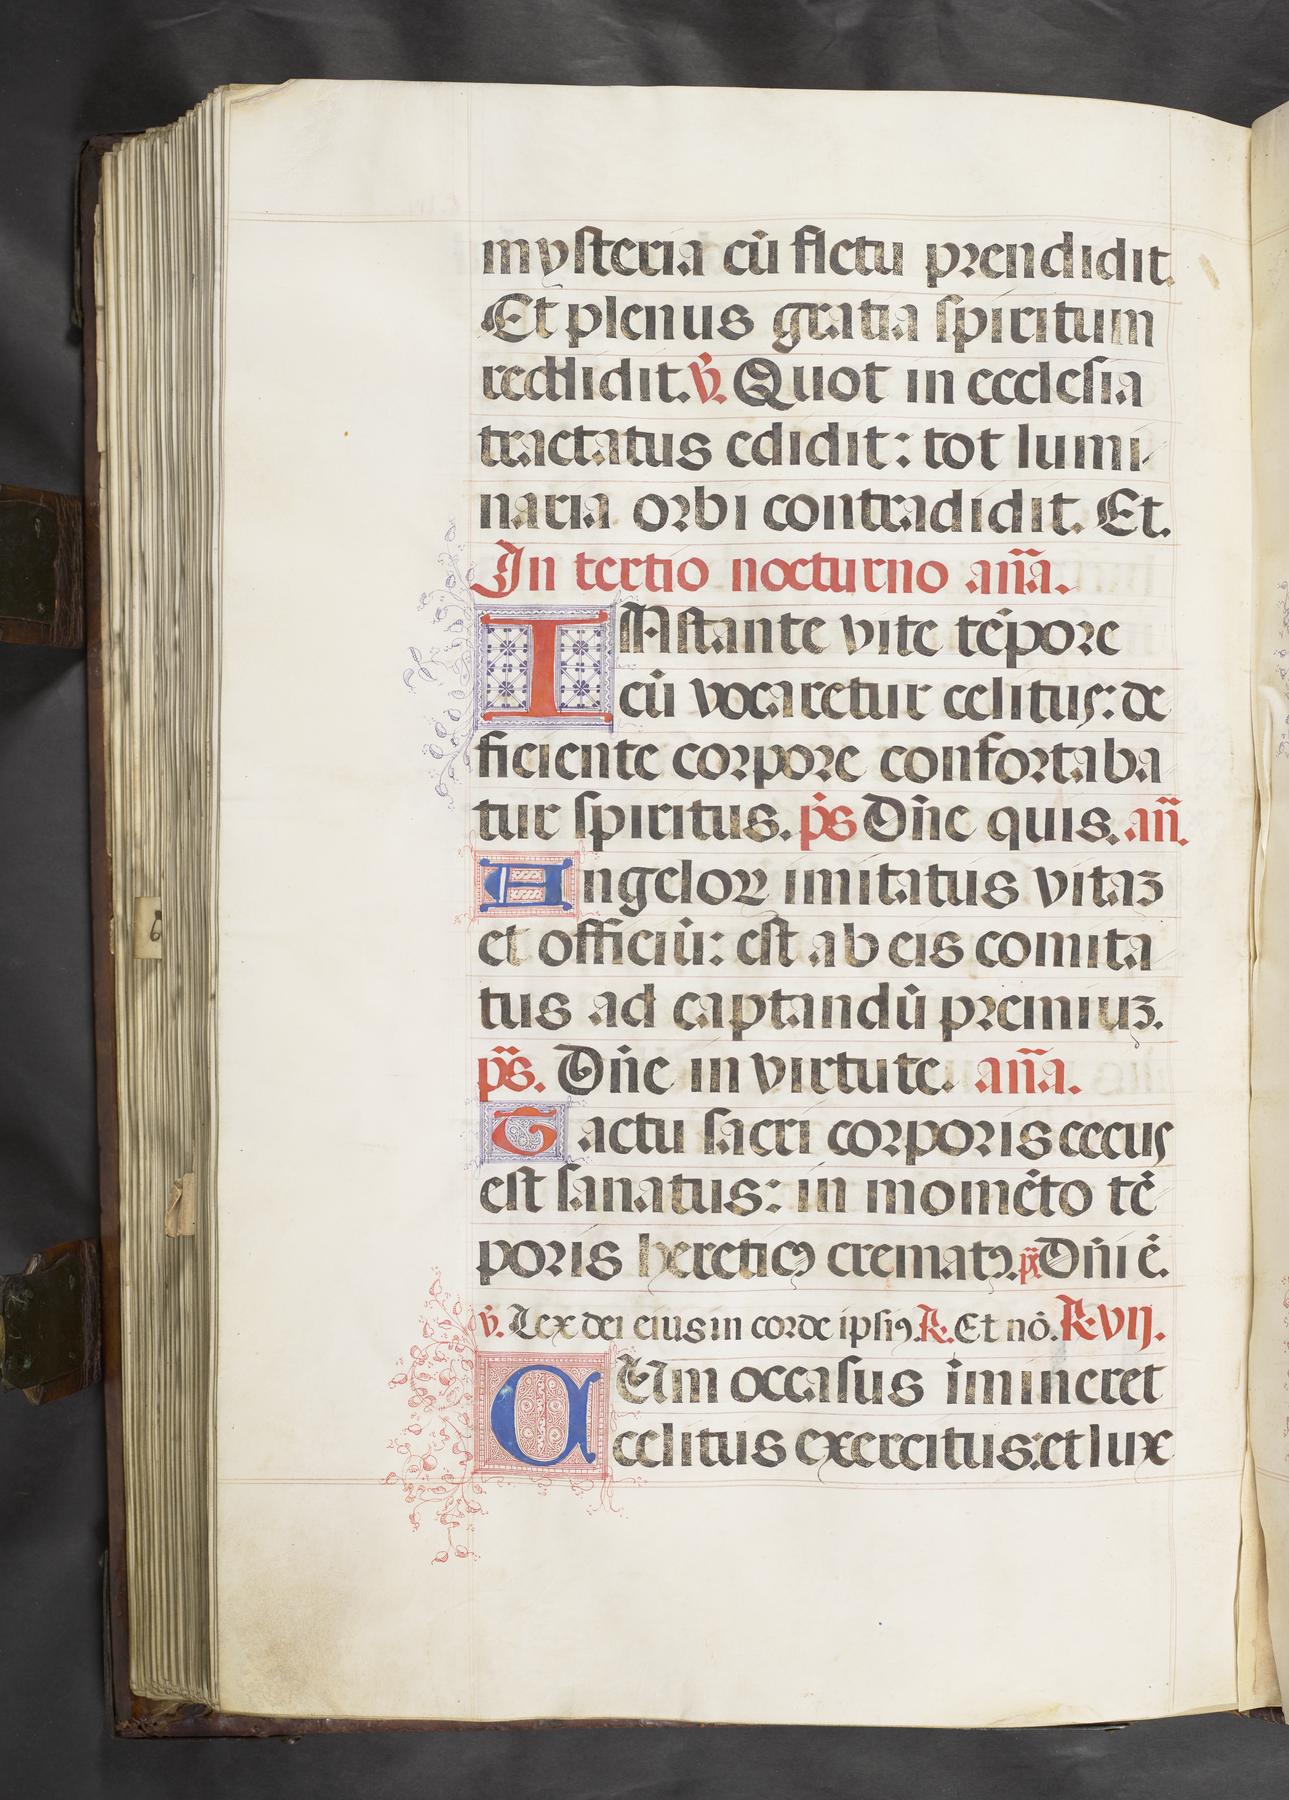 mysteria cū fletu prendidit.
Et plenus gratia spiritum
reddidit. v̄. Quot in ecclesia
tractatus edidit: tot lumi-
naria orbi contradidit. Et.
In tertio nocturno an̄a.
INstante vite tēpore
cū vocaretur celitus: de
ficiente corpore confortaba
tur spiritus. p̄s Dn̄e quis. an̄.
Angeloꝝ imitatus vitaꝫ
et officiū: est ab eis comita
tus ad captandū premiuꝫ.
p̄s. Dn̄e in virtute. an̄a.
Tactu sacri corporis cecus
est sanatus: in momēto tē
poris hereticꝰ crematꝰ. p̄s Dn̄i ē.
v̄. Lex dei eius in corde ipsiꝰ. R. Et nō. R. VII.
CUm occasus īmineret
celitus exercitus: et lux